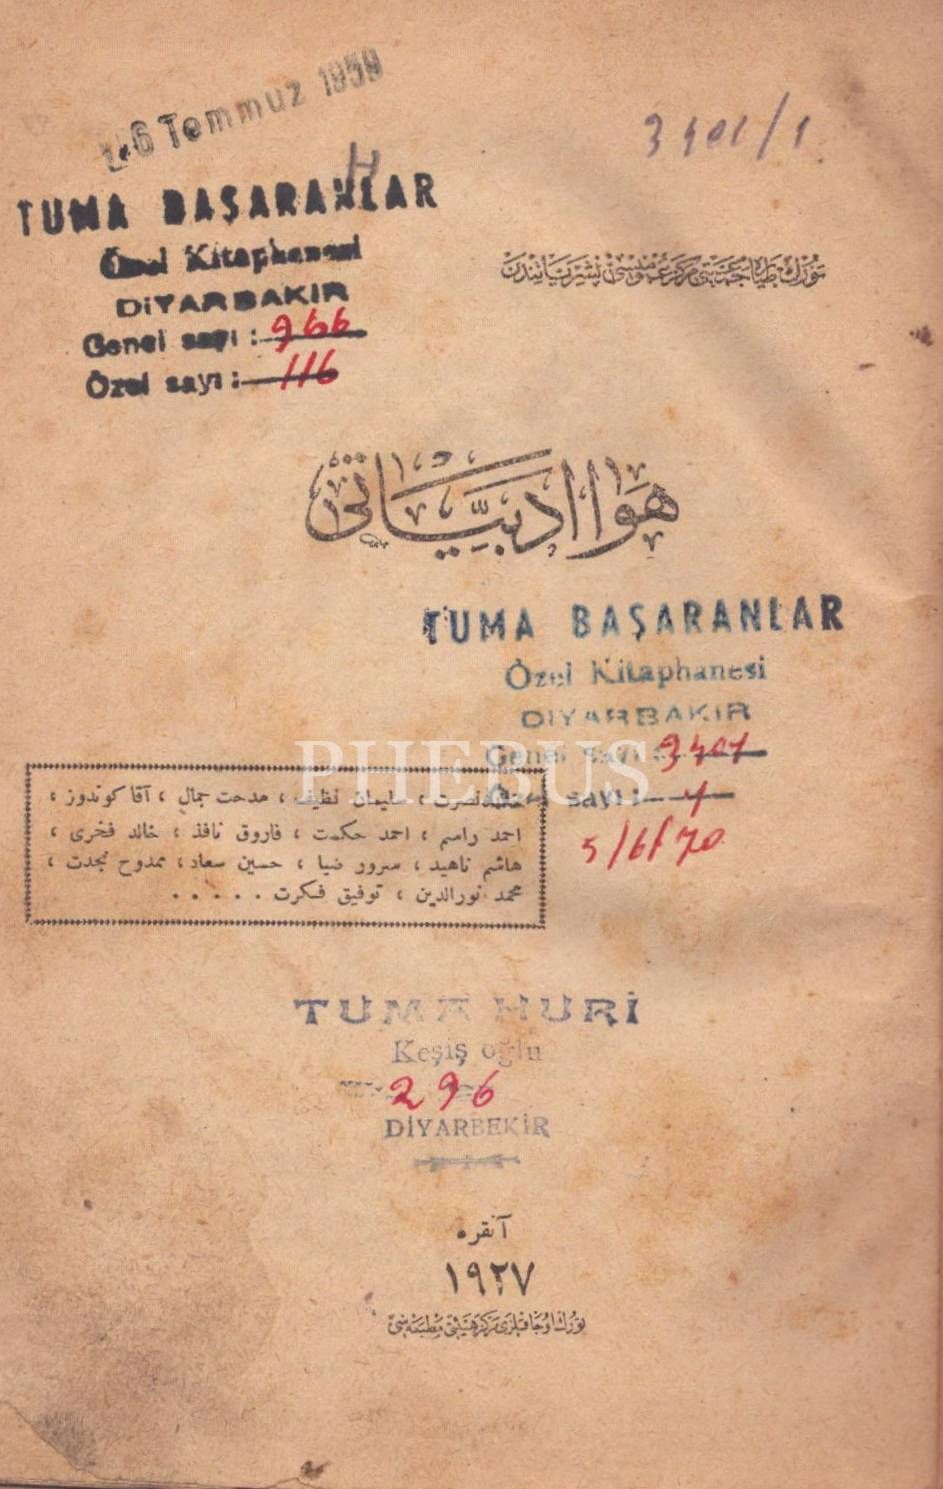 16 Temmuz 1959
3401/1
H
TUMA BAŞARANLAR
Özel Kitaphanesi
DİYARBAKIR
Genel sayı : 966
Özel sayı : 116
تورك طياره جمعيتی مركز عموميسی نشرياتندن
هوا ادبياتی
TUMA BAŞARANLAR
Özel Kitaphanesi
DİYARBAKIR
Genel sayı : 3401
Özel sayı : 1
5/6/70
PHEBUS
نصرت ، سليمان نظيف ، مدحت جمال ، آقا كوندوز ،
احمد راسم ، احمد حكمت ، فاروق نافذ ، خالد فخری ،
هاشم ناهيد ، سرور ضيا ، حسين سعاد ، ممدوح نجدت ،
محمد نورالدين ، توفيق فكرت . . . . .
TUMA NURİ
Keşiş oğlu
296
DİYARBEKİR
آنقره
١٩٢٧
تورك اوجاقلری مركز هيئتی مطبعه سی